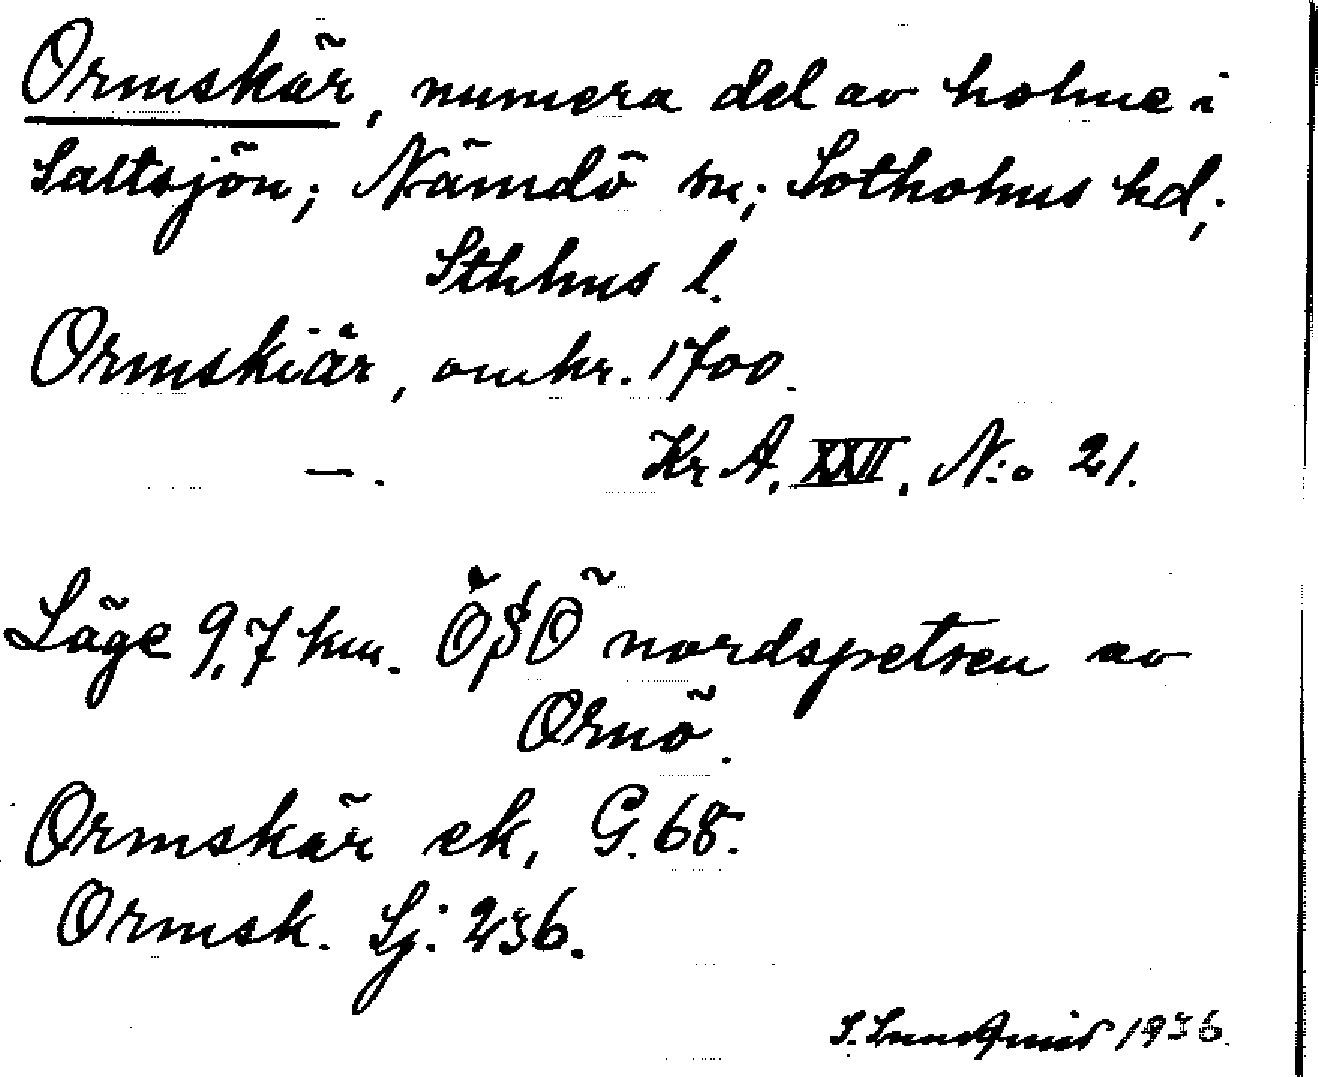 Ormskär, numera del av holme i
Saltsjön; Nämdö sn; Sotholms hd;
Sthlms l.
Ormskiär, omkr. 1700.
—. Kr A. XXII. N:o 21.
Läge 9,7 km. ÖSÖ nordspetsen av
Ornö.
Ormskär ek, G. 68.
Ormsk. Sj: 236.
S. Lundquist 1936.